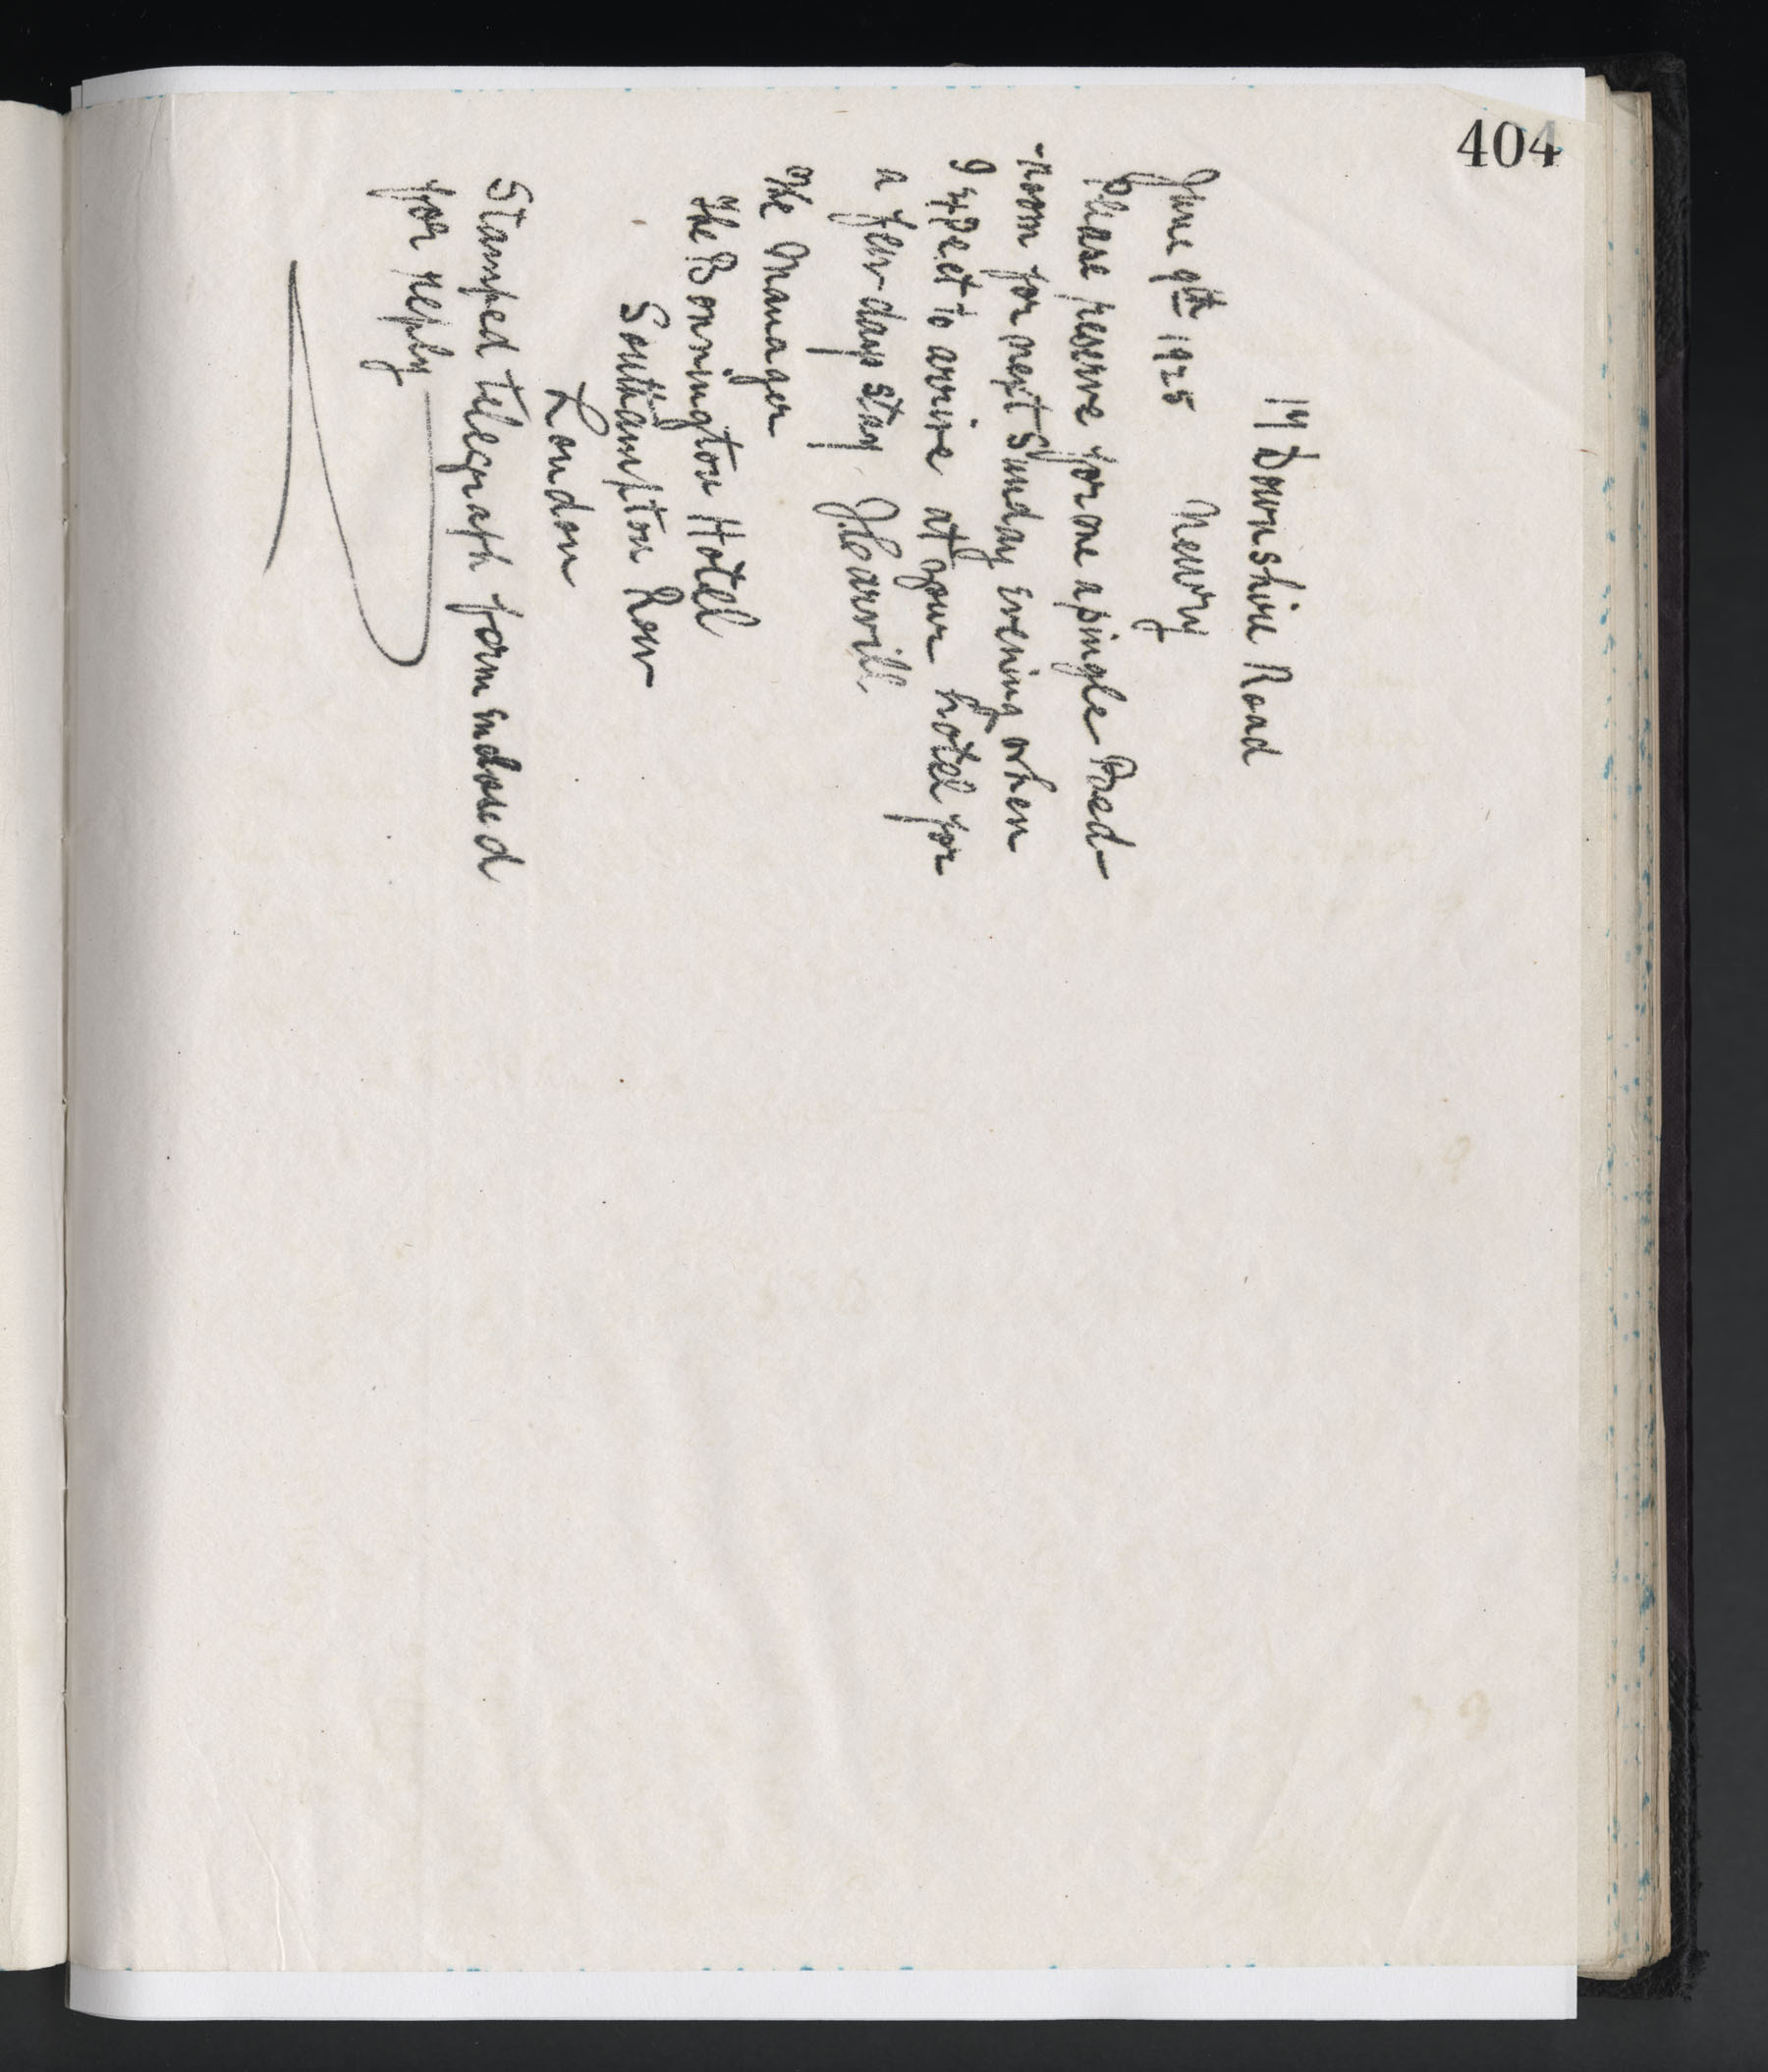 404
14 Downshire Road
June 9th 1925 Newry
Please reserve for one a single Bed-
-room for next Sunday evening when
I expect to arrive at your hotel for
a few days stay
The Manager
The Bonnington Hotel
Southampton Row
London
Stamped telegraph form enclosed
for reply